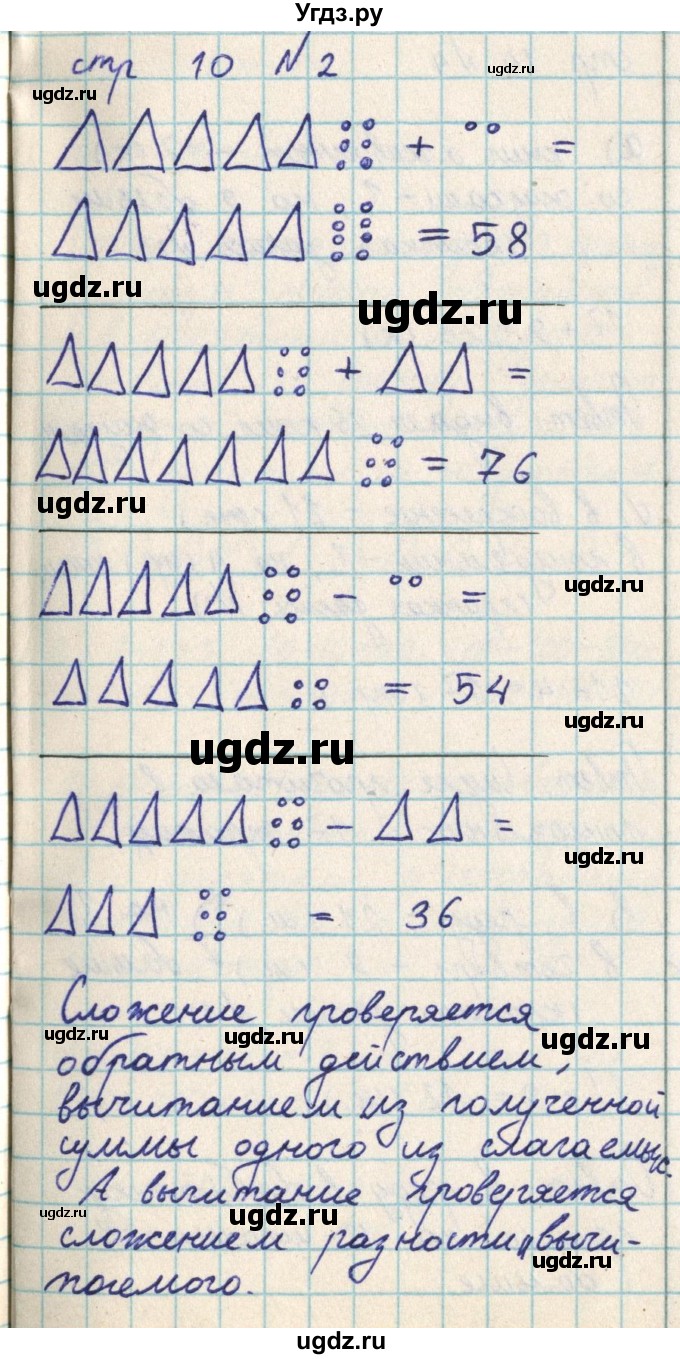 Угдз.ру
стр 10 № 2
ugdz.ru
ugdz.ru
+ =
= 58
ugdz.ru
ugdz.ru
+ =
= 76
ugdz.ru
ugdz.ru
- =
= 54
ugdz.ru
ugdz.ru
- =
ugdz.ru
= 36
Сложение проверяется
ugdz.ru
ugdz.ru
ugdz.ru
обратным действием,
вычитанием из полученной
суммы одного из слагаемых.
А вычитание проверяется
ugdz.ru
ugdz.ru
сложением разности и вычи-
ugdz.ru
таемого.
ugdz.ru